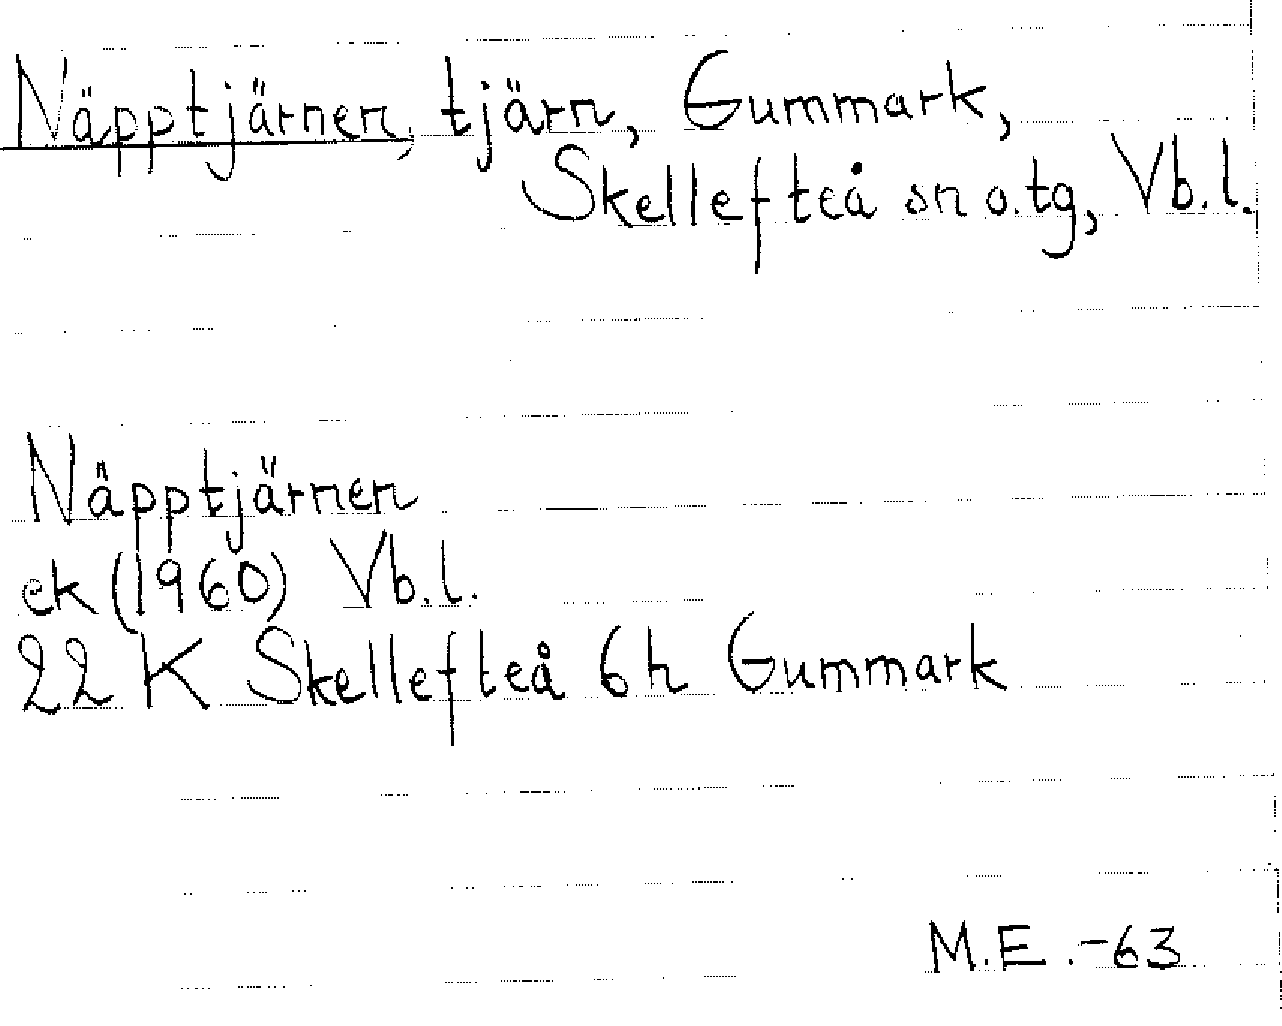 Näpptjärnen, tjärn, Gummark,
Skellefteå sn o. tg, Vb. l.
Näpptjärnen
ek (1960) Vb. l.
22 K Skellefteå 6h Gummark
M.E. -63